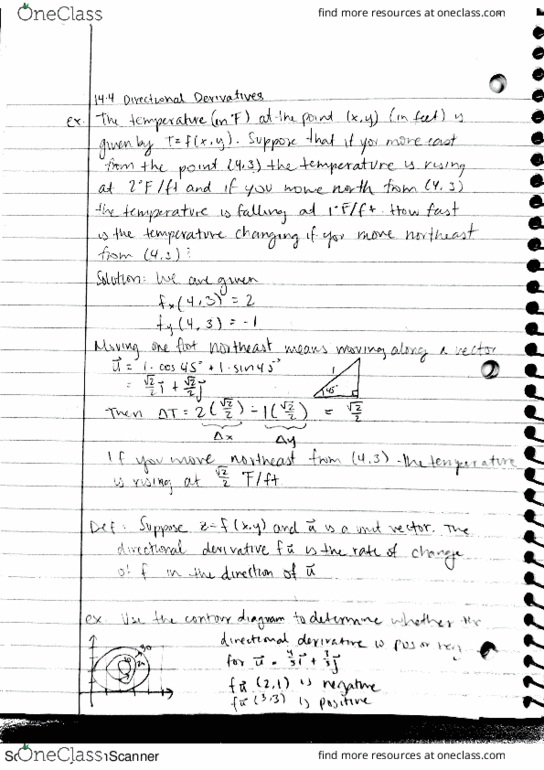 OneClass find more resources at oneclass.com
14.4 Directional Derivatives
ex. The temperature (in °F) at the point (x,y) (in feet) is
given by T=f(x,y). Suppose that if you move east
from the point (4,3) the temperature is rising
at 2°F/ft and if you move north from (4,3)
the temperature is falling at 1°F/ft. How fast
is the temperature changing if you move northeast
from (4,3)?
Solution: We are given
fx(4,3) = 2
fy(4,3) = -1
Moving one foot northeast means moving along a vector
u⃗ = 1·cos45° + 1·sin45°
= √2/2 i⃗ + √2/2 j⃗
1
45°
Then ΔT = 2(√2/2) - 1(√2/2) = √2/2
Δx Δy
If you move northeast from (4,3) the temperature
is rising at √2/2 °F/ft
Def: Suppose z=f(x,y) and u⃗ is a unit vector. The
directional derivative fu⃗ is the rate of change
of f in the direction of u⃗
ex. Use the contour diagram to determine whether the
directional derivative is pos or neg
for u⃗ =
fu⃗ (2,1) is negative
fu⃗ (3,3) is positive
OneClass Scanner find more resources at oneclass.com